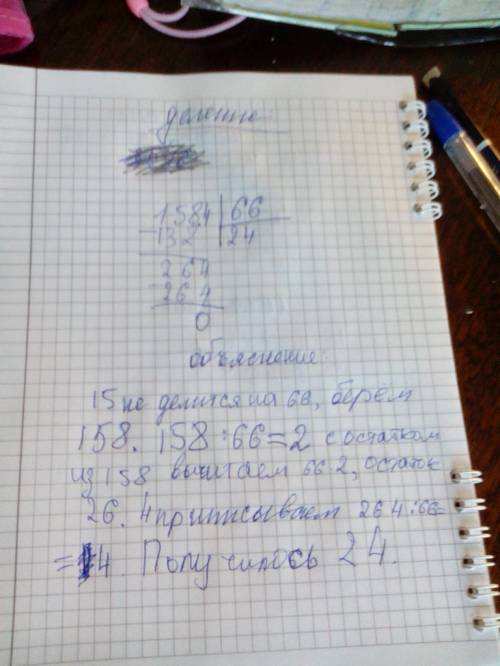 деление
1584 66
132 24
264
264
0
объяснение:
15 не делится на 66, берём
158. 158:66=2 с остатком
из 158 вычитаем 66·2, остаток
26. 4 приписываем 264:66=
=4. Получилось 24.